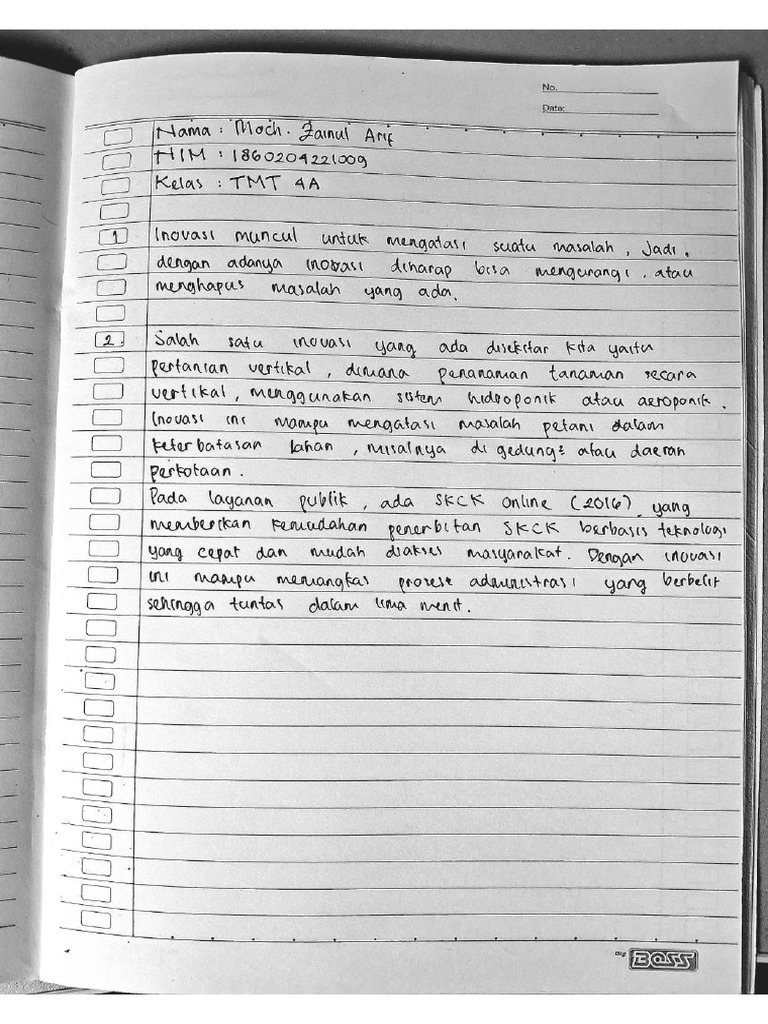 No.
Date:
Nama : Moch. Zainul Arif
NIM : 1860204221009
Kelas : TMT 4A
1 Inovasi muncul untuk mengatasi suatu masalah, Jadi,
dengan adanya inovasi diharap bisa mengurangi, atau
menghapus masalah yang ada.
2. Salah satu inovasi yang ada disekitar kita yaitu
pertanian vertikal, dimana penanaman tanaman secara
vertikal, menggunakan sistem hidroponik atau aeroponik.
Inovasi ini mampu mengatasi masalah petani dalam
keterbatasan lahan, misalnya di gedung² atau daerah
perkotaan.
Pada layanan publik, ada SKCK Online (2016), yang
memberikan kemudahan penerbitan SKCK berbasis teknologi
yang cepat dan mudah diakses masyarakat. Dengan inovasi
ini mampu memangkas prosese administrasi yang berbelit
sehingga tuntas dalam lima menit.
BOSS